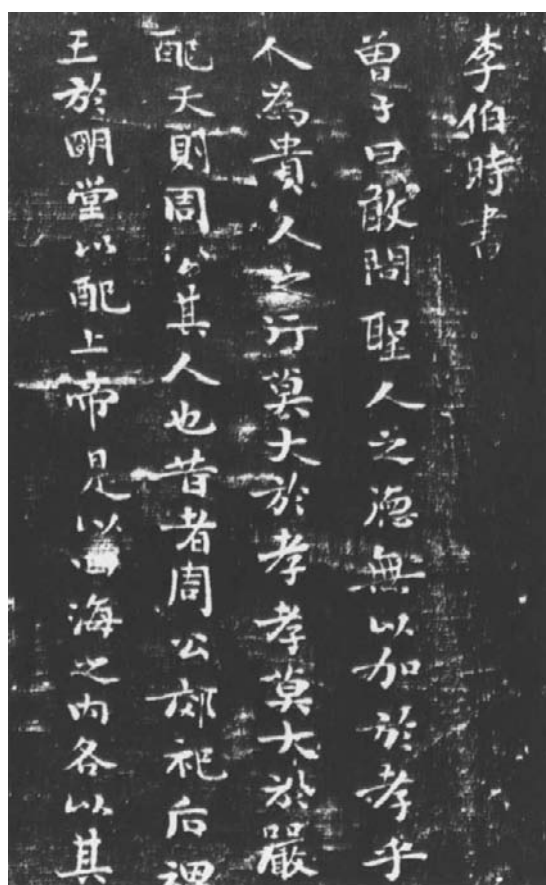 李伯時書
曾子曰敢問聖人之德無以加於孝乎
人為貴人之行莫大於孝孝莫大於嚴
配天則周公其人也昔者周公郊祀后稷
王於明堂以配上帝是以四海之内各以其